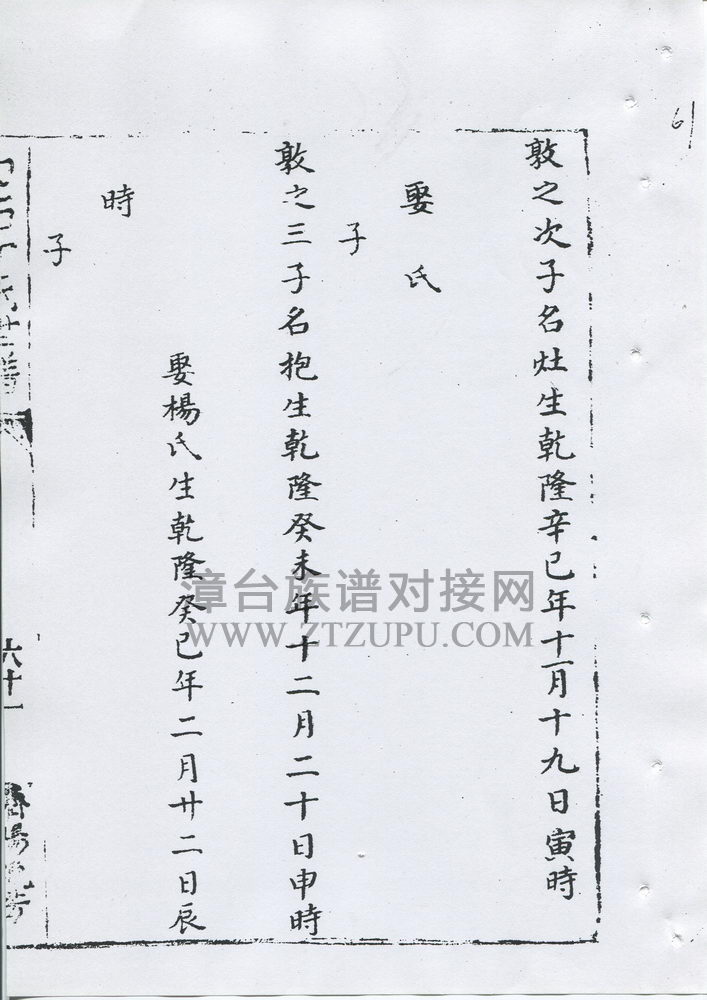 61
敦之次子名灶生乾隆辛巳年十一月十九日寅時
娶氏
子
敦之三子名抱生乾隆癸未年十二月二十日申時
娶楊氏生乾隆癸巳年二月廿二日辰
時
子
六十一
漳台族谱对接网
WWW.ZTZUPU.COM